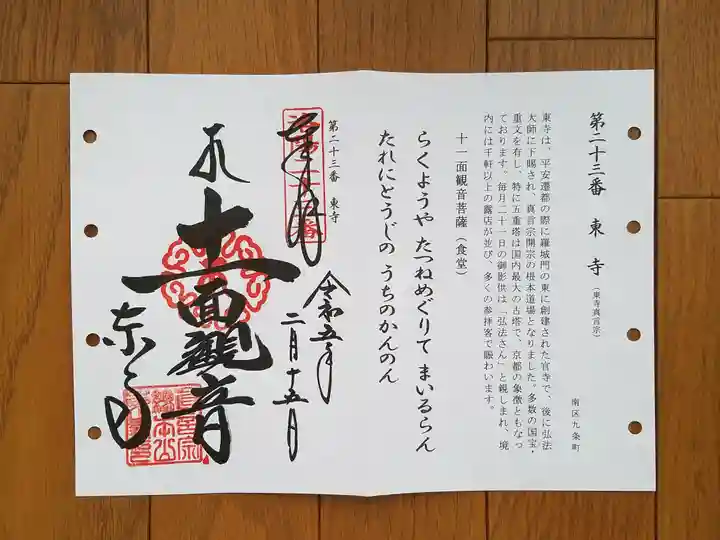 第二十三番 東寺 (東寺真言宗)
南区九条町
東寺は、平安遷都の際に羅城門の東に創建された官寺で、後に弘法
大師に下賜され、真言宗開宗の根本道場となりました。多数の国宝・
重文を有し、特に五重塔は国内最大の古塔で、京都の象徴ともなっ
ております。毎月二十一日の御影供は「弘法さん」と親しまれ、境
内には千軒以上の露店が並び、多くの参拝客で賑わいます。
十一面観音菩薩(食堂)
らくようや たつねめぐりて まいるらん
たれにとうじの うちのかんのん
第二十三番 東寺
奉拝
令和五年
二月十五日
十一面観音
東寺